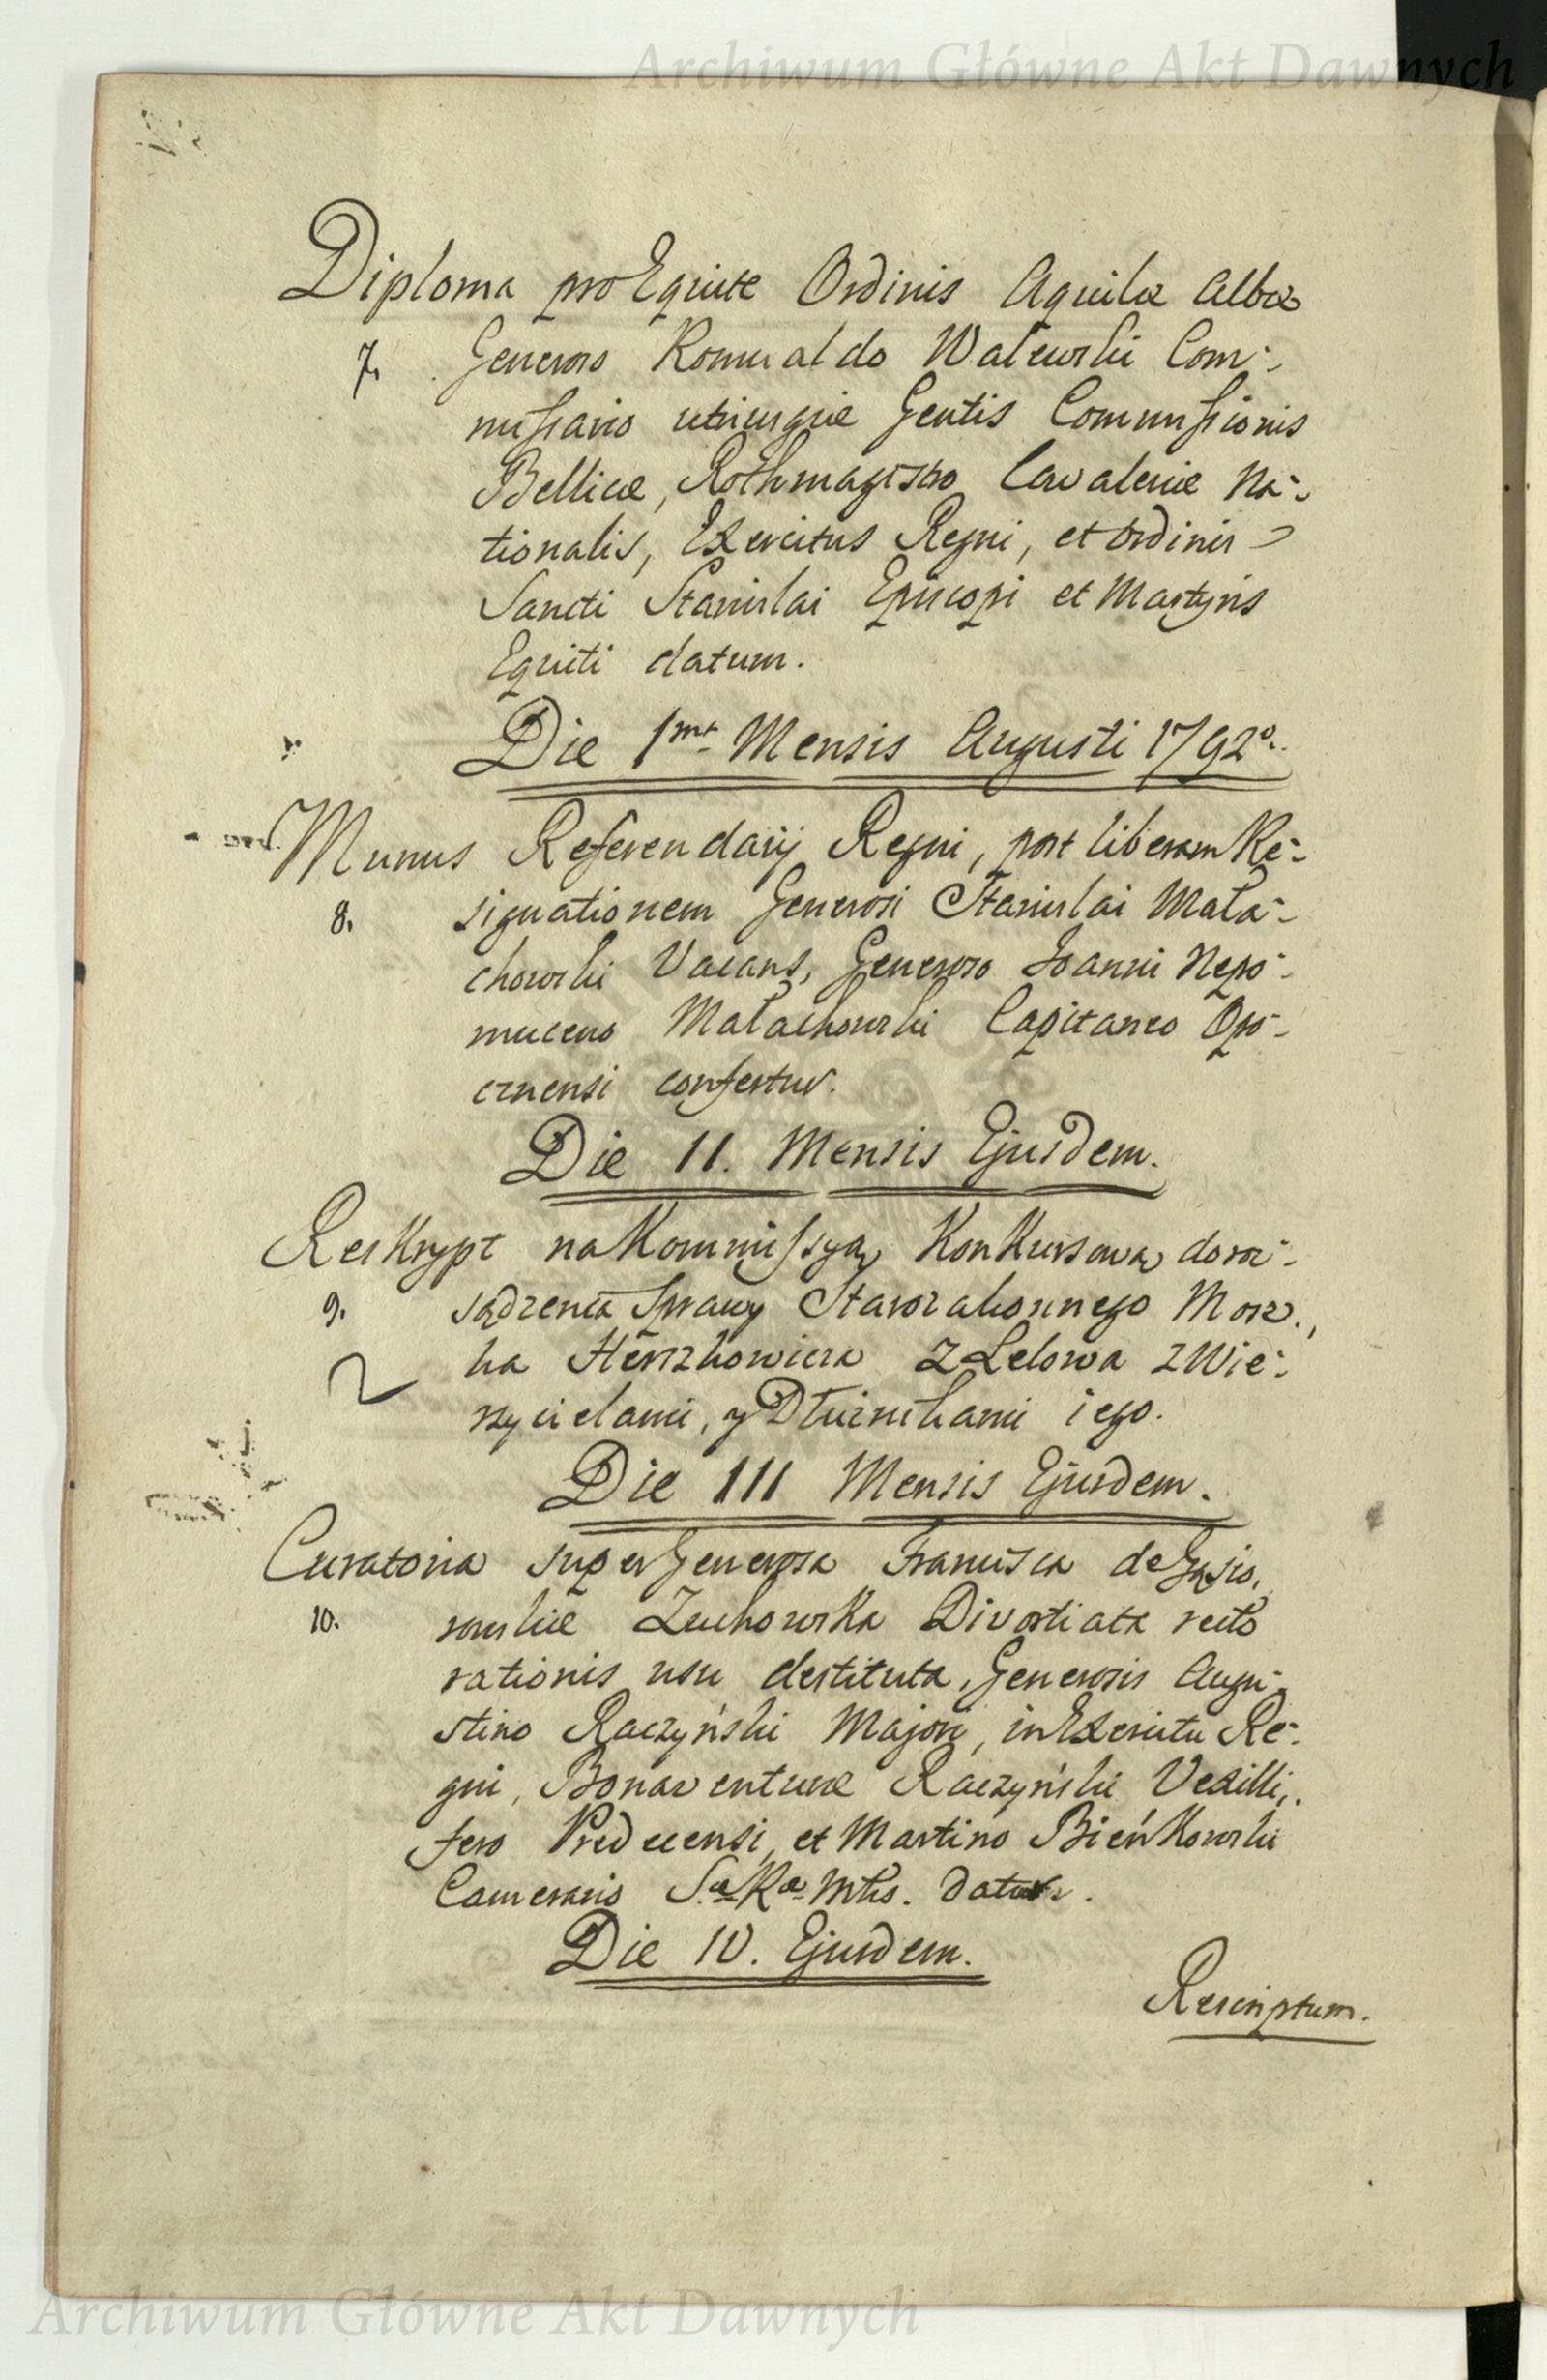 Archiwum Główne Akt Dawnych
Diploma pro Equite Ordinis Aquilæ Albæ
7. Generoso Romualdo Walewski Com-
missario utriusque Gentis Commissionis
Bellicæ, Rothmagistro Cavaleriæ Na-
tionalis, Exercitus Regni, et Ordinis
Sancti Stanislai Episcopi et Martyris
Equiti datum.
Die 1ma Mensis Augusti 1792o.
Munus Referendarij Regni, post liberam Re-
8. signationem Generosi Stanislai Mała-
chowski Vacans, Generoso Joanni Nepo-
muceno Małachowski Capitaneo Opo-
cznensi confertur.
Die 11. Mensis Ejusdem.
Reskrypt na Kommissyą Konkursową do roz-
9. sądzenia Sprawy Starozakonnego Mosz.,
ka Herszkowicza z Lelowa z Wie-
rzycielami, y Dłużnikami iego.
Die 111 Mensis Ejusdem.
Curatoria super Generosa Francisca de
10. Divortiata recto
rationis usu destituta, Generosis Augu-
stino Raczyński Majori, in Exercitu Re-
gni, Bonaventuræ Raczyński Vexilli,
fero et Martino Bieńkowski
Camerario Sæ Ræ Mtis. datur.
Die IV. Ejusdem.
Rescriptum.
Archiwum Główne Akt Dawnych